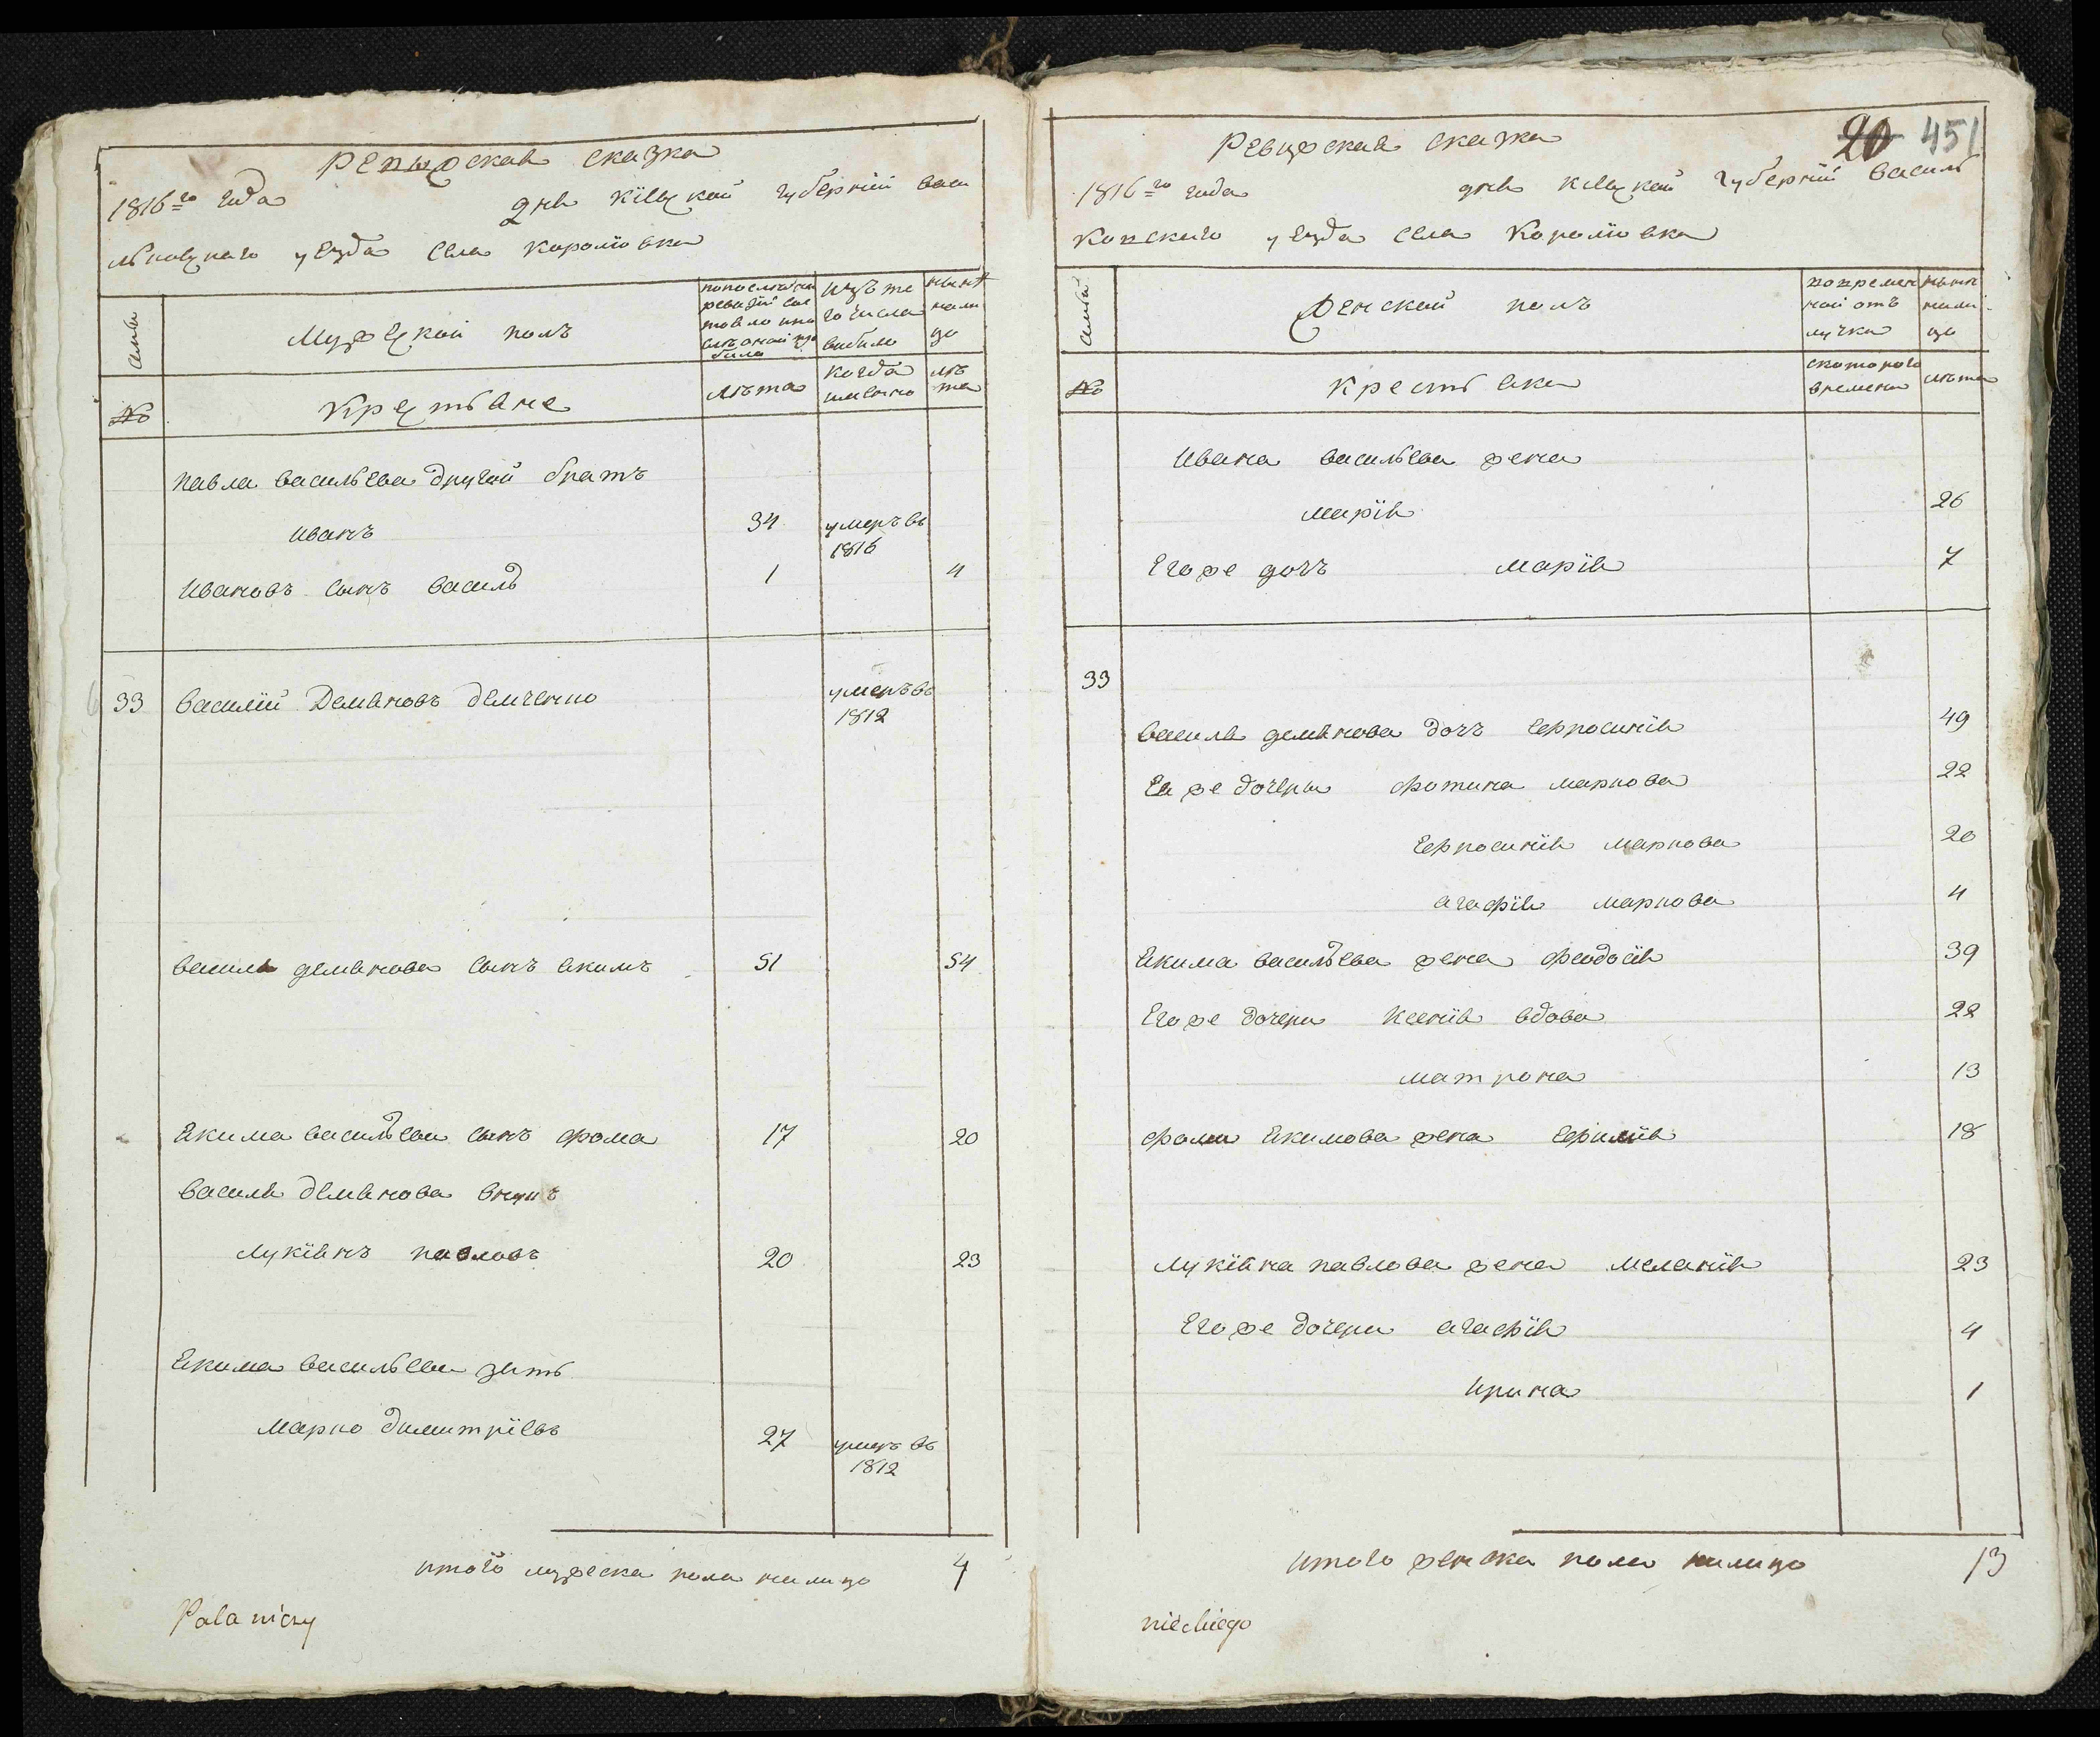 Ревизская сказка
1816го года дня Кіевской губерніи Васи
льковскаго уезда села Королiовки
семьи
Мужеской полъ
попоследней ревизіи состояло ипо слѣ оной прибыло
Изъ то го числа выбыло
нынѣ нали цо
№
Крестьяне
лѣта
когда имянно
лѣ та
Павла васильева другой братъ
иванъ 34 умеръ въ 1816
ивановъ сынъ василь 1 4
33 василій Демяновъ демченко умеръ въ 1812
василя демянова сынъ якимъ 51 54
Якима васильева сынъ фома 17 20
василя демянова внукъ
лукіянъ павловъ 20 23
Якима васильева зять
Марко димитріевъ 27 умеръ въ 1812
итого мужеска пола налицо 4
20 451
Ревизская сказка
1816го года дня Кіевской губерніи Василь
Ковского уезда села Королiовки
семьи
Женской полъ
вовремен ной отъ лучке
нынѣ нали цо
№
крестьяки
скоторого времени
лѣта
Ивана васильева жена
марія 26
Егоже дочъ Марія 7
33
василя демянова дочъ Ефросинія 49
Ея же дочери фотина маркова 22
Ефросинія маркова 20
агафія маркова 4
Якима васильева жена феодосія 39
Егоже дочери Ксенія вдова 22
матрона 13
фомы Якимова жена Ефимія 18
лукіяна павлова жена меланія 23
Егоже дочери агафія 4
ирина 1
итого женска пола налицо 13